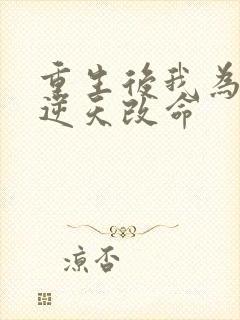 重生後我為
逆天改命
涼否